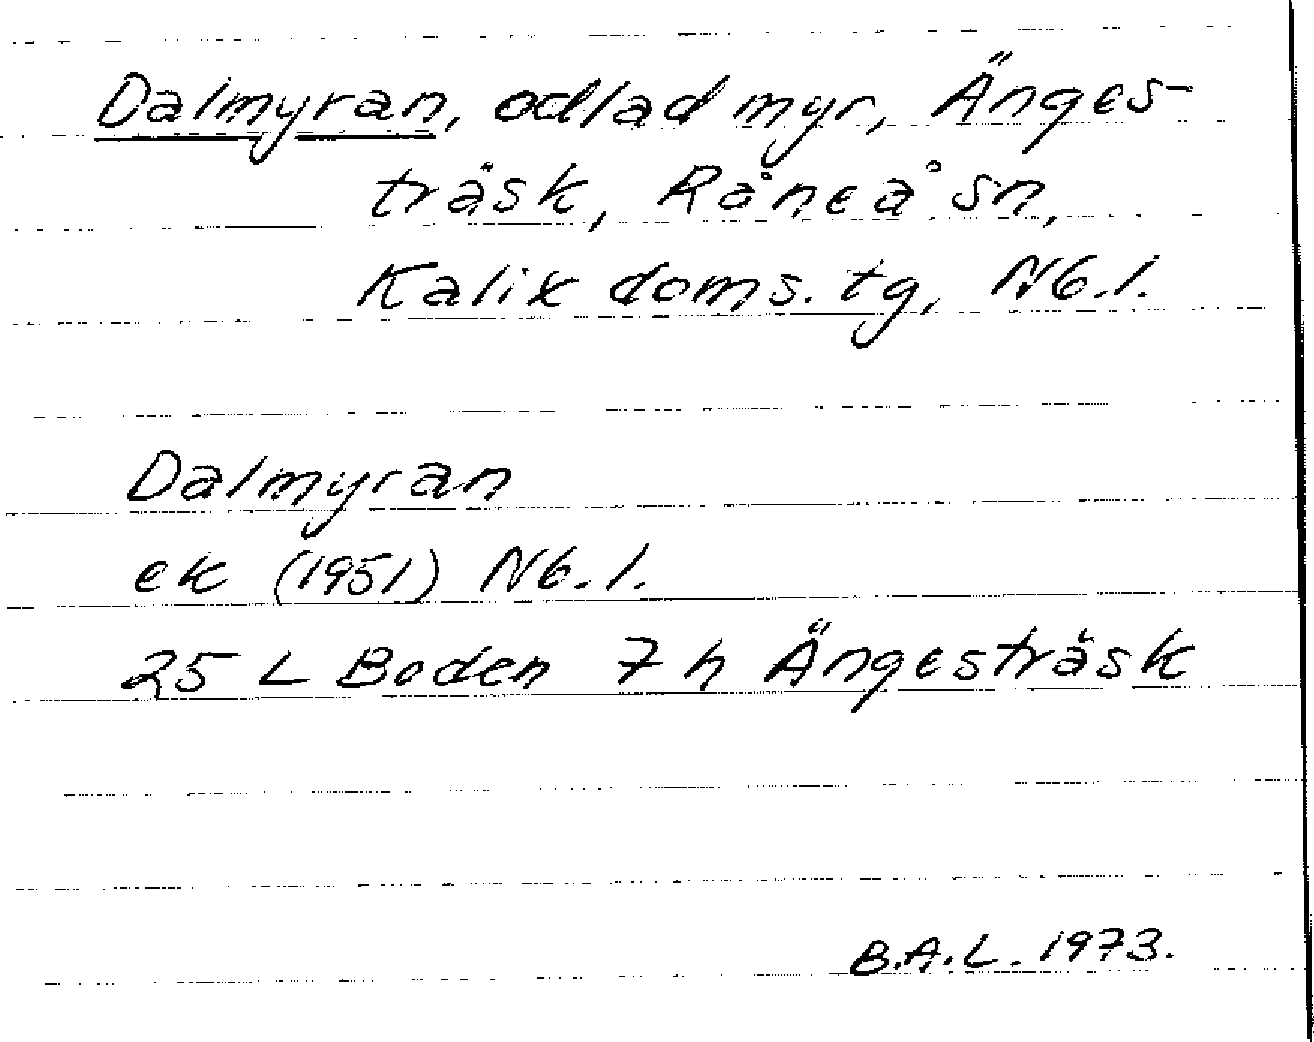 Dalmyran, odlad myr, Änges-
träsk, Råneå sn,
Kalix doms. tg, N6.l.
Dalmyran
ek (1951) N6.l.
25 L Boden 7 h Ängesträsk
B.A.L. 1973.